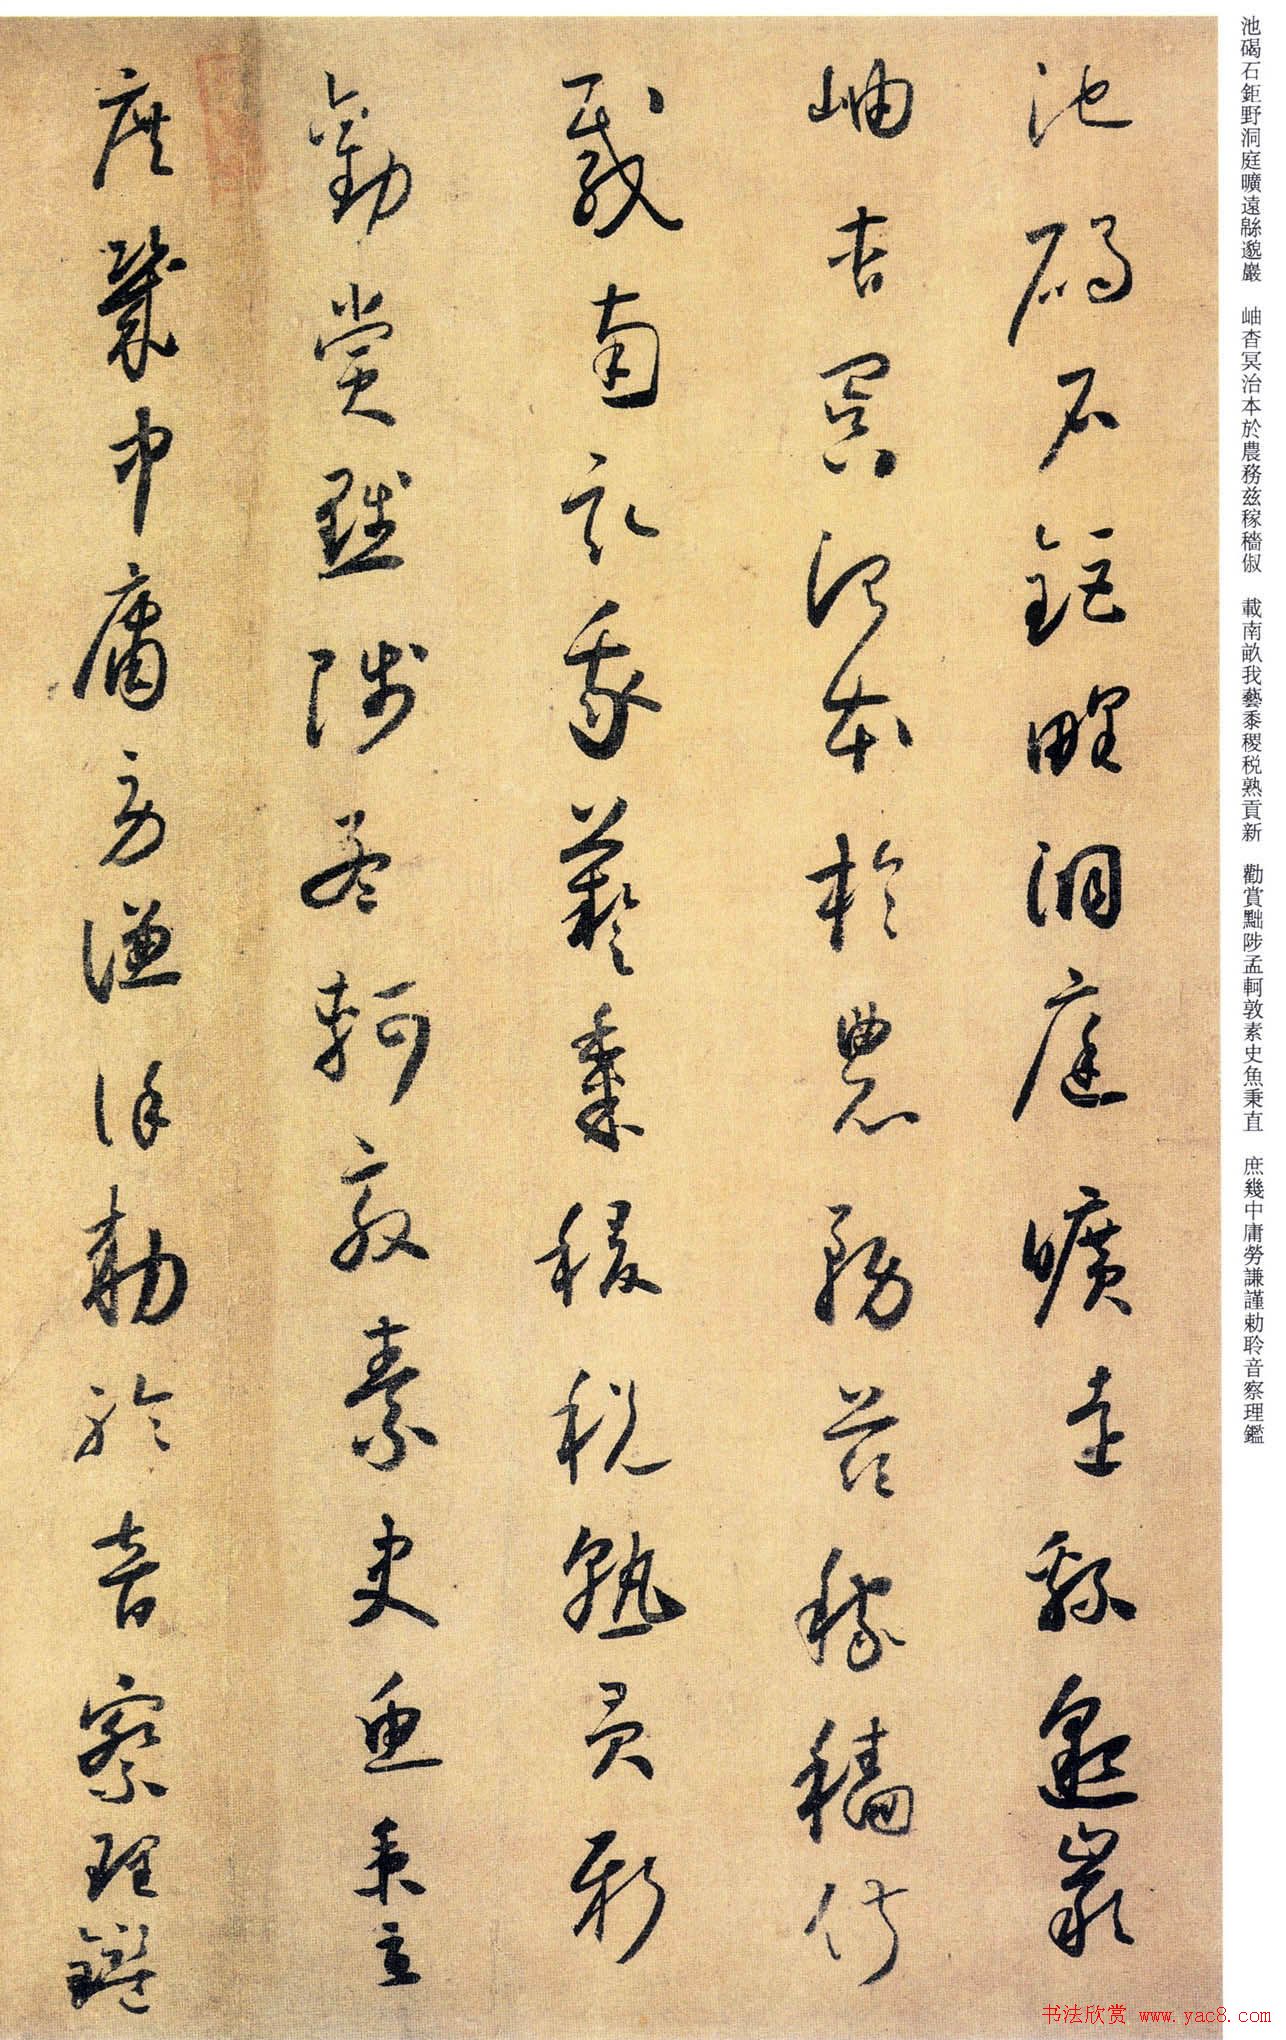 池碣石鉅野洞庭曠遠緜邈巖 岫杳冥治本於農務兹稼穡俶 載南畝我藝黍稷税熟貢新 勸賞黜陟孟軻敦素史魚秉直 庶幾中庸勞謙謹勅聆音察理鑑
池碣石鉅野洞庭曠遠緜邈巖
岫杳冥治本於農務兹稼穡俶
載南畝我藝黍稷税熟貢新
勸賞黜陟孟軻敦素史魚秉直
庶幾中庸勞謙謹勅聆音察理鑑
书法欣赏 www.yac8.com